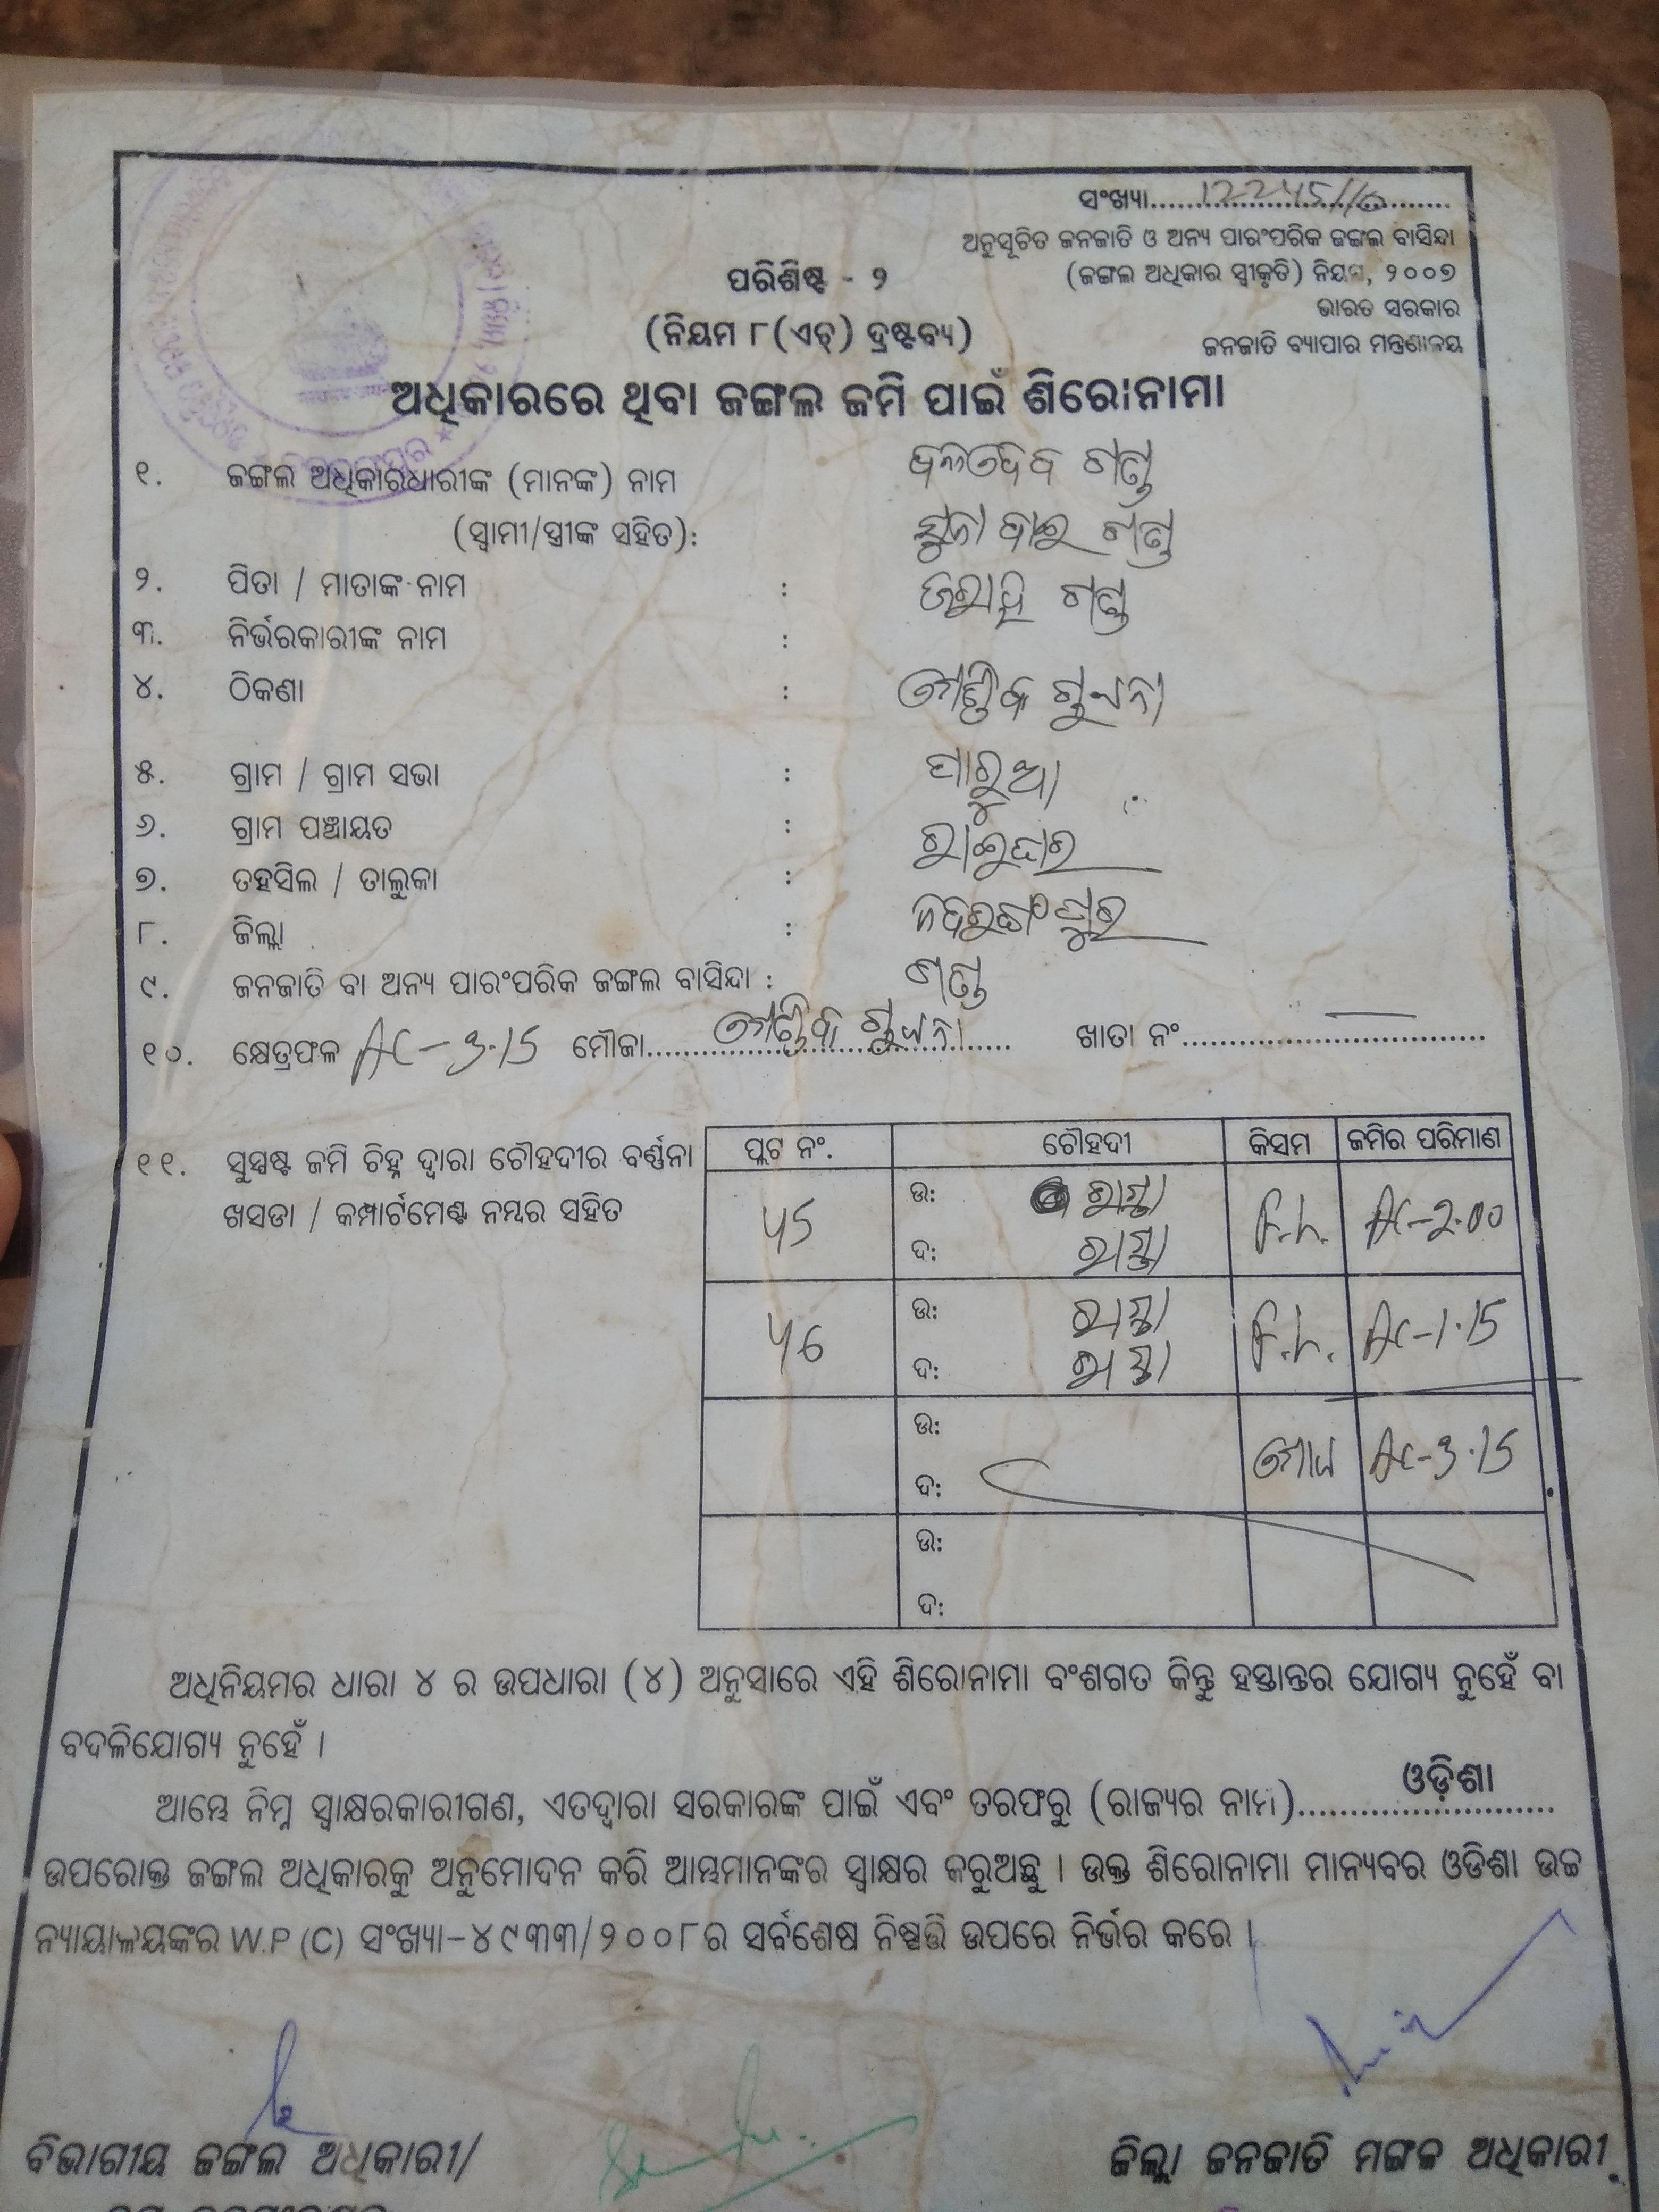 ସଂଖ୍ୟା....................
ଅନୁସୂଚିତ ଜନଜାତି ଓ ଅନ୍ୟ ପାରଂପରିକ ଜଙ୍ଗଲ ବାସିନ୍ଦା
ପରିଶିଷ୍ଟ - ୨ (ଜଙ୍ଗଲ ଅଧିକାର ସ୍ୱୀକୃତି) ନିୟମ, ୨୦୦୭
ଭାରତ ସରକାର
(ନିୟମ ୮(ଏଚ୍) ଦ୍ରଷ୍ଟବ୍ୟ) ଜନଜାତି ବ୍ୟାପାର ମନ୍ତ୍ରଣାଳୟ
ଅଧିକାରରେ ଥିବା ଜଙ୍ଗଲ ଜମି ପାଇଁ ଶିରୋନାମା
୧. ଜଙ୍ଗଲ ଅଧିକାରଧାରୀଙ୍କ (ମାନଙ୍କ) ନାମ ବଳଦେବ ଗଣ୍ଡ
(ସ୍ୱାମୀ/ସ୍ତ୍ରୀଙ୍କ ସହିତ):
୨. ପିତା / ମାତାଙ୍କ ନାମ :
୩. ନିର୍ଭରକାରୀଙ୍କ ନାମ :
୪. ଠିକଣା :
୫. ଗ୍ରାମ / ଗ୍ରାମ ସଭା :
୬. ଗ୍ରାମ ପଞ୍ଚାୟତ : ପାରୁଆ
୭. ତହସିଲ / ତାଲୁକା : ରାଇଘର
୮. ଜିଲ୍ଲା : ନବରଙ୍ଗପୁର
୯. ଜନଜାତି ବା ଅନ୍ୟ ପାରଂପରିକ ଜଙ୍ଗଲ ବାସିନ୍ଦା : ଗଣ୍ଡ
୧୦. କ୍ଷେତ୍ରଫଳ AC-3.15 ମୌଜା.................... ଖାତା ନଂ....................
୧୧. ସୁସ୍ପଷ୍ଟ ଜମି ଚିହ୍ନ ଦ୍ୱାରା ଚୌହଦୀର ବର୍ଣ୍ଣନା
ଖସଡା / କମ୍ପାର୍ଟମେଣ୍ଟ ନମ୍ବର ସହିତ
ପ୍ଲଟ ନଂ. ଚୌହଦୀ କିସମ ଜମିର ପରିମାଣ
45 ଉ: ରାସ୍ତା F.h. AC-2.00
ଦ: ରାସ୍ତା
46 ଉ: ରାସ୍ତା F.h. AC-1.15
ଦ: ରାସ୍ତା
ଉ:
ଦ: ମୋଟ AC-3.15
ଉ:
ଦ:
ଅଧିନିୟମର ଧାରା ୪ ର ଉପଧାରା (୪) ଅନୁସାରେ ଏହି ଶିରୋନାମା ବଂଶଗତ କିନ୍ତୁ ହସ୍ତାନ୍ତର ଯୋଗ୍ୟ ନୁହେଁ ବା
ବଦଳିଯୋଗ୍ୟ ନୁହେଁ ।
ଆମ୍ଭେ ନିମ୍ନ ସ୍ୱାକ୍ଷରକାରୀଗଣ, ଏତଦ୍ୱାରା ସରକାରଙ୍କ ପାଇଁ ଏବଂ ତରଫରୁ (ରାଜ୍ୟର ନାମ)....ଓଡ଼ିଶା....
ଉପରୋକ୍ତ ଜଙ୍ଗଲ ଅଧିକାରକୁ ଅନୁମୋଦନ କରି ଆମ୍ଭମାନଙ୍କର ସ୍ୱାକ୍ଷର କରୁଅଛୁ । ଉକ୍ତ ଶିରୋନାମା ମାନ୍ୟବର ଓଡିଶା ଉଚ୍ଚ
ନ୍ୟାୟାଳୟଙ୍କର W.P (C) ସଂଖ୍ୟା-୪୯୩୩/୨୦୦୮ର ସର୍ବଶେଷ ନିଷ୍ପତ୍ତି ଉପରେ ନିର୍ଭର କରେ ।
ବିଭାଗୀୟ ଜଙ୍ଗଲ ଅଧିକାରୀ/ ଜିଲ୍ଲା ଜନଜାତି ମଙ୍ଗଳ ଅଧିକାରୀ